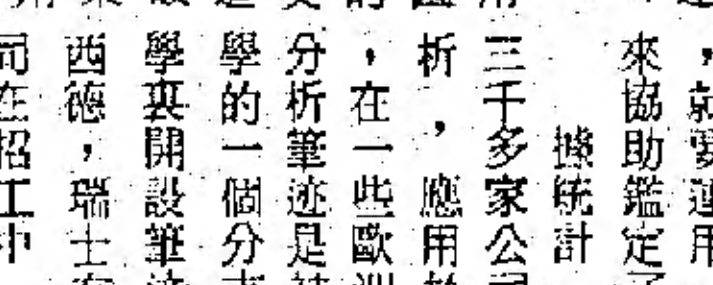 ，就要運用
來協助鑑定
據統計
三千多家公司
析，應用
，在一些歐洲
分析筆迹是
學的一個分支
學裏開設筆迹
西德，瑞士
同在招工中